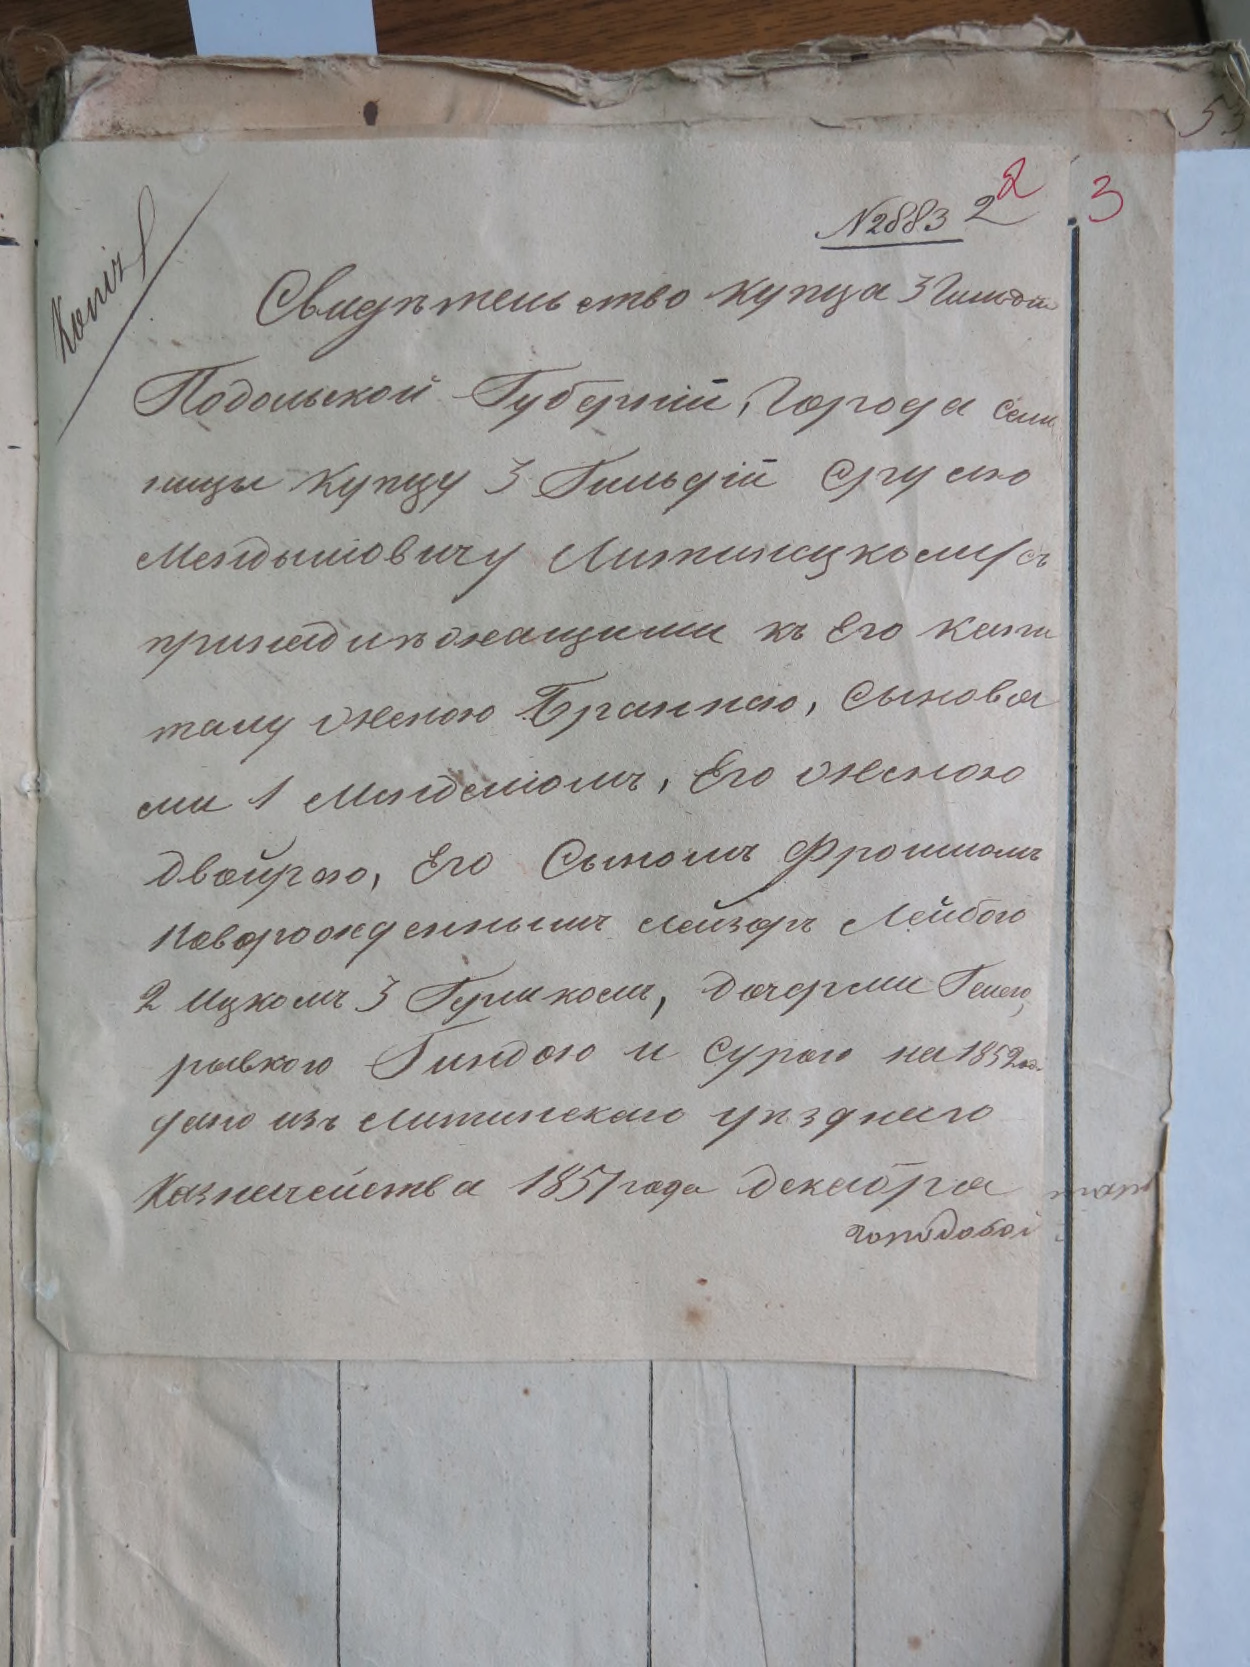 53
2
№ 2883 2
3
Копія
Свидѣтельство купца 3 Гильдіи
Подольской Губерніи, Города Сали
ницы купцу 3 Гильдіи Срулю
Мендылювичу Литинецкому съ
принадлѣжащими къ Его капи
талу женою Бранною, Сыновя
ми 1 Менделіомъ, Его женою
Двойрою, Его Сыномъ Фроимомъ
Новорожденнымъ Лейзоръ Лейбою
2 Ицкомъ 3 Гершкомъ, дочерми Генею,
рывкою Гиндою и Сурою на 1852 год.
дано изъ Литинскаго уѣзднаго
Казначейства 1851 года декабра